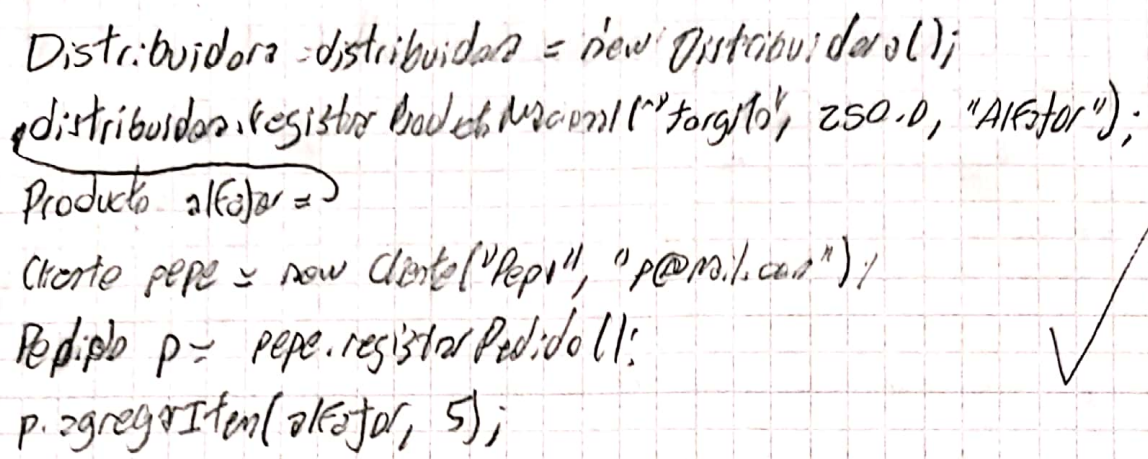 Distribuidora distribuidora = new Distribuidora();
distribuidora.registrarProductoNacional("Jorgito", 250.0, "Alfajor");
Producto alfajor =
Cliente pepe = new Cliente("Pepe", "p@mail.com");
Pedido p = pepe.registrarPedido();
p.agregarItem(alfajor, 5);